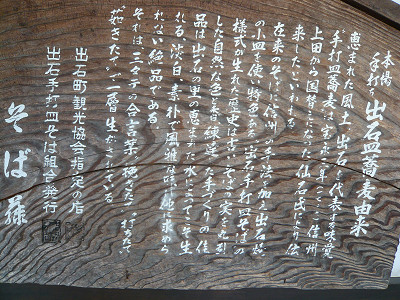 本場
手打ち
出石皿蕎麦由来
恵まれた風土 出石を代表する味覚
手打皿蕎麦は宝永三年 信州
上田から国替えとなった仙石氏により伝
来したといわれる
在来のそばに信州の手法が加り出石焼
の小皿を使い特色ある出石手打皿そばの
様式が生れた歴史は古い そして実に
した自然な色と香 練達した手づくりの佳
品は出石の里の恵まれた水によって一そう生
れる 淡白 素朴で風雅な味は他に求めら
れない絶品である
それは三タテの合言葉、挽きたて、打ちたて、
茹きたてで一層生かされている
出石町観光協会指定の店
出石手打皿そば組合発行
そば